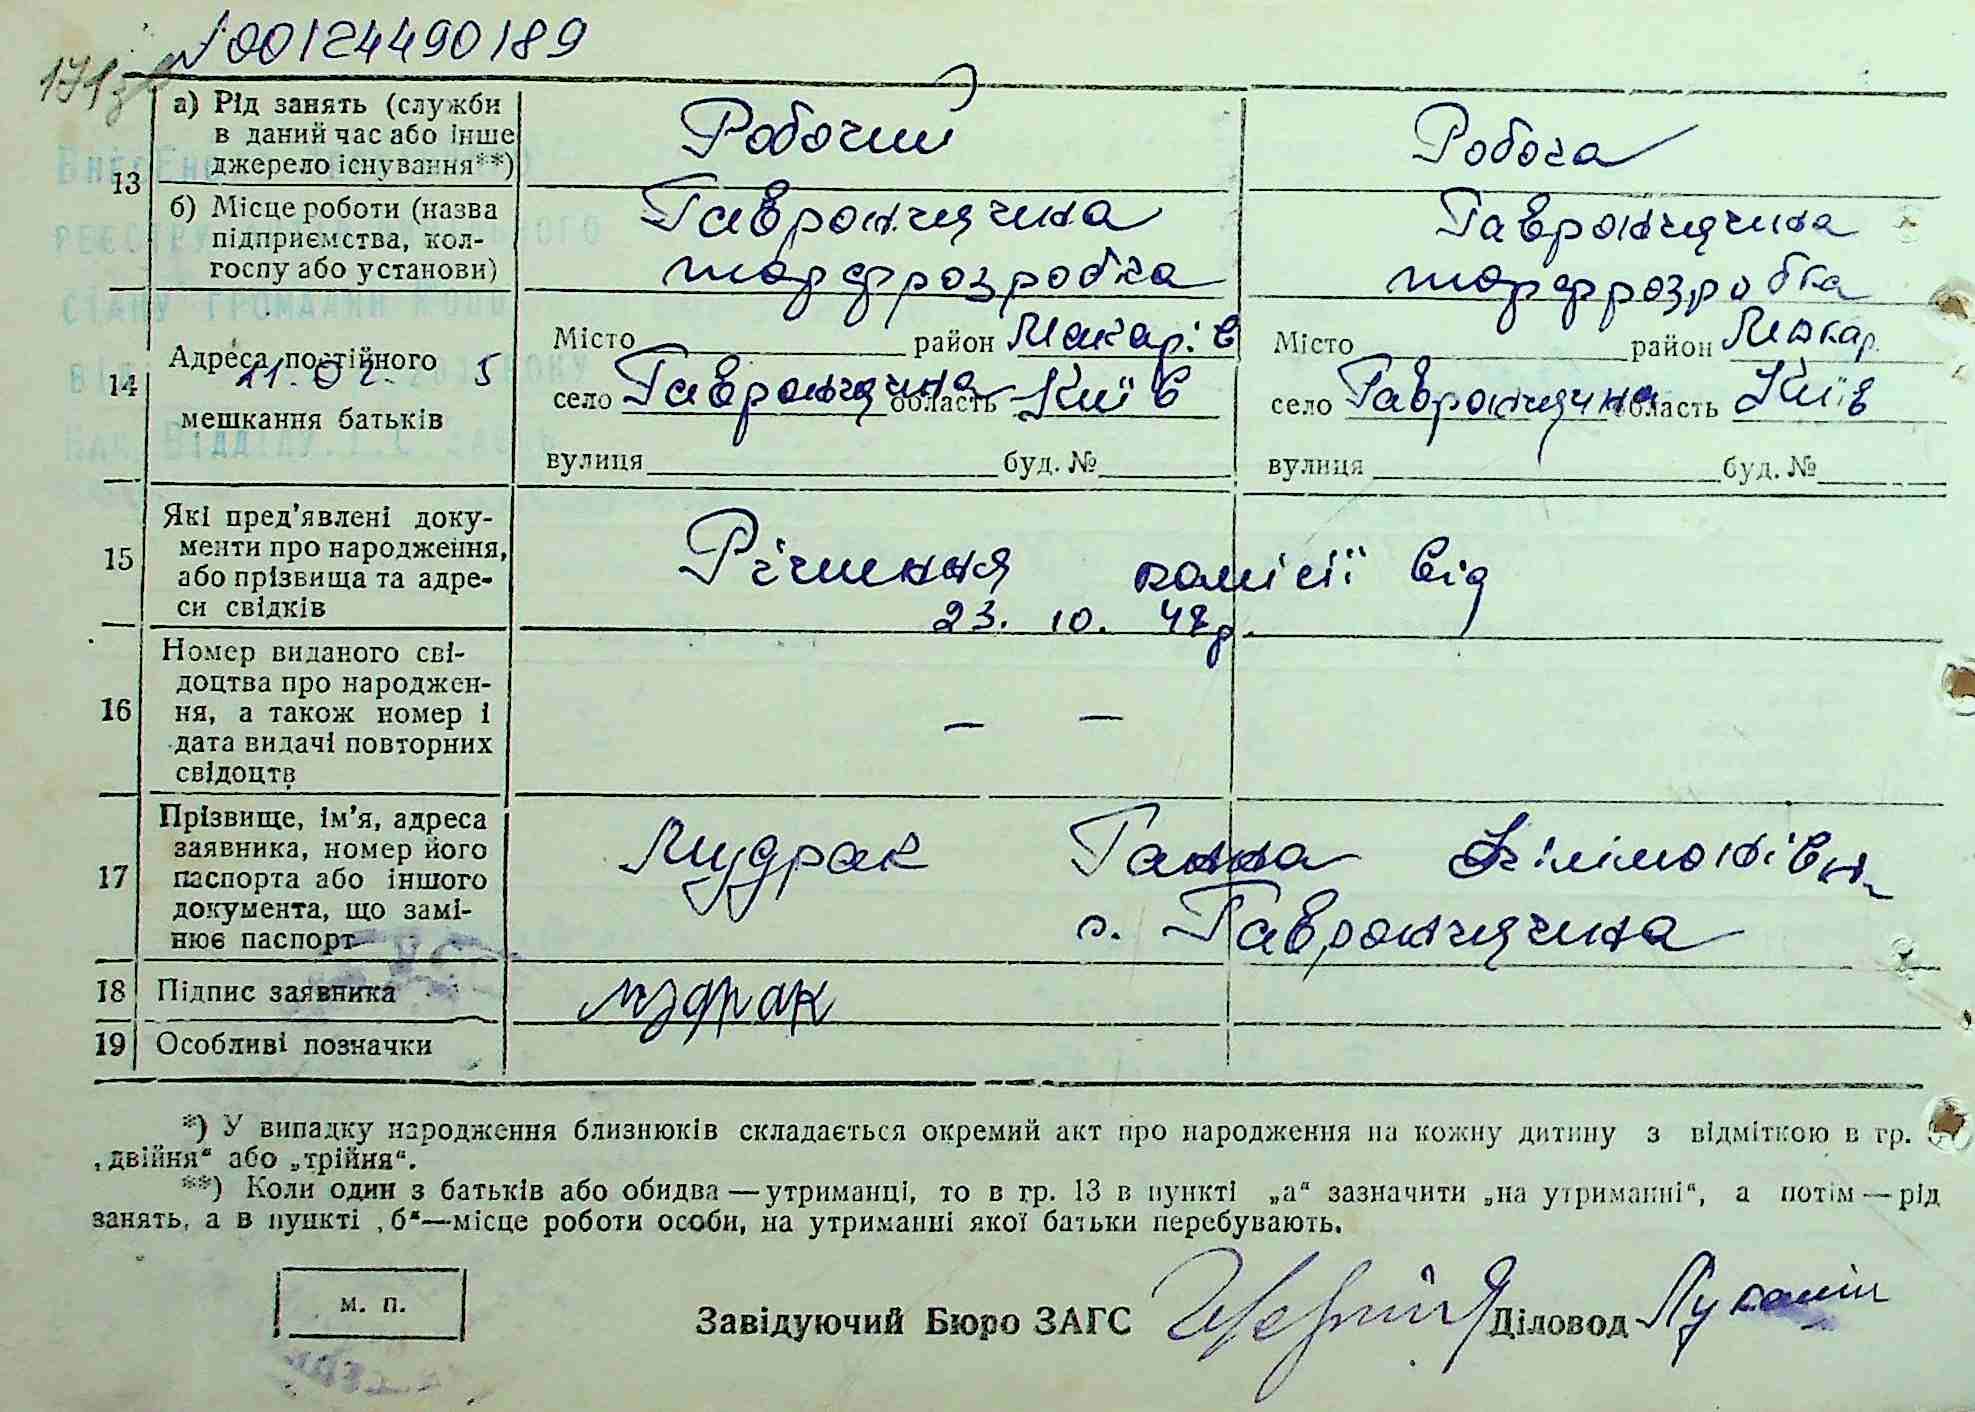 00124490189
13
а) Рід занять (служби
в даний час або інше
джерело існування**)
Робочий
Робоча
б) Місце роботи (назва
підприємства, кол-
госпу або установи)
Гавронщчина
торфрозробка
Гавронщчина
торфрозробка
14
Адреса постійного
мешкання батьків
Місто район Макарів
село Гавронщчина область Київ
вулиця буд. №
Місто район Макар.
село Гавронщчина область Київ
вулиця буд. №
15
Які пред'явлені доку-
менти про народження,
або прізвища та адре-
си свідків
Рішення комісії від
23. 10.
16
Номер виданого сві-
доцтва про народжен-
ня, а також номер і
дата видачі повторних
свідоцтв
— —
17
Прізвище, ім'я, адреса
заявника, номер його
паспорта або іншого
документа, що замі-
нює паспорт
Мудрак Ганна
с. Гавронщчина
18 Підпис заявника
Мудрак
19 Особливі позначки
*) У випадку народження близнюків складається окремий акт про народження на кожну дитину з відміткою в гр.
„двійня“ або „трійня“.
**) Коли один з батьків або обидва — утриманці, то в гр. 13 в пункті „а“ зазначити „на утриманні“, а потім — рід
занять, а в пункті „б“—місце роботи особи, на утриманні якої батьки перебувають.
м. п.
Завідуючий Бюро ЗАГС
Діловод